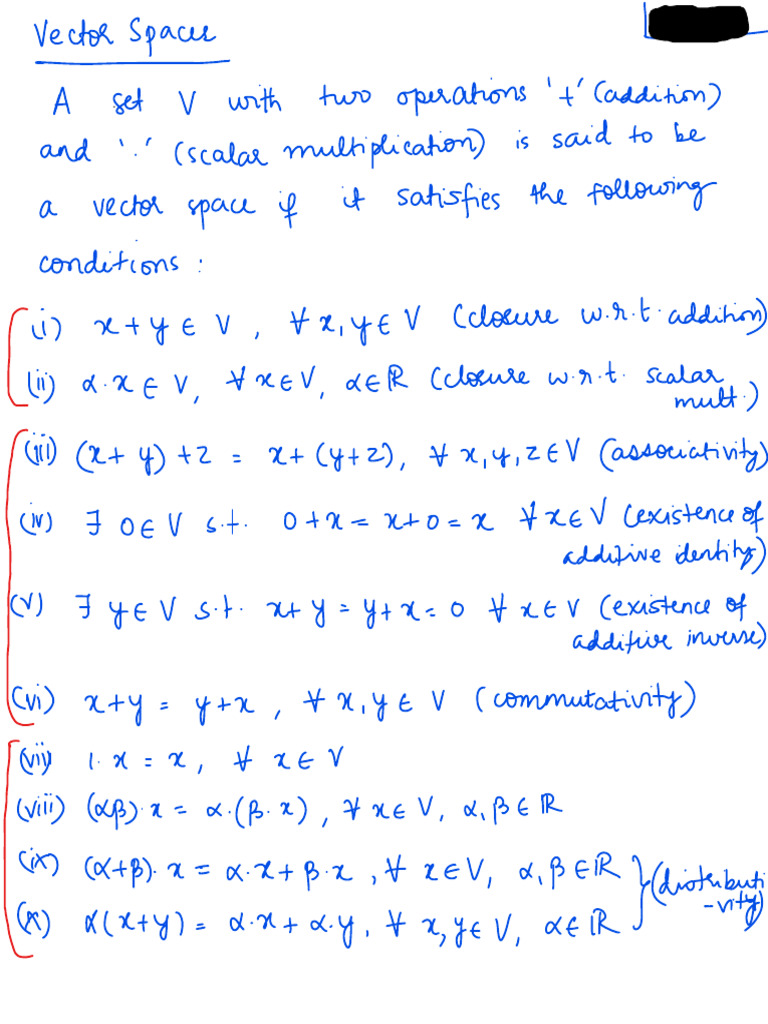 Vector Spaces
A set V with two operations '+' (addition)
and '.' (scalar multiplication) is said to be
a vector space if it satisfies the following
conditions :
(i) x + y ∈ V , ∀ x, y ∈ V (closure w.r.t. addition)
(ii) α·x ∈ V, ∀ x ∈ V, α ∈ ℝ (closure w.r.t. scalar
mult.)
(iii) (x + y) + z = x + (y + z), ∀ x, y, z ∈ V (associativity)
(iv) ∃ 0 ∈ V s.t. 0 + x = x + 0 = x ∀ x ∈ V (existence of
additive identity)
(v) ∃ y ∈ V s.t. x + y = y + x = 0 ∀ x ∈ V (existence of
additive inverse)
(vi) x + y = y + x , ∀ x, y ∈ V (commutativity)
(vii) 1·x = x, ∀ x ∈ V
(viii) (αβ)·x = α·(β·x) , ∀ x ∈ V, α, β ∈ ℝ
(ix) (α+β)·x = α·x + β·x , ∀ x ∈ V, α, β ∈ ℝ } (distributi
(x) α(x+y) = α·x + α·y, ∀ x, y ∈ V, α ∈ ℝ -vity)